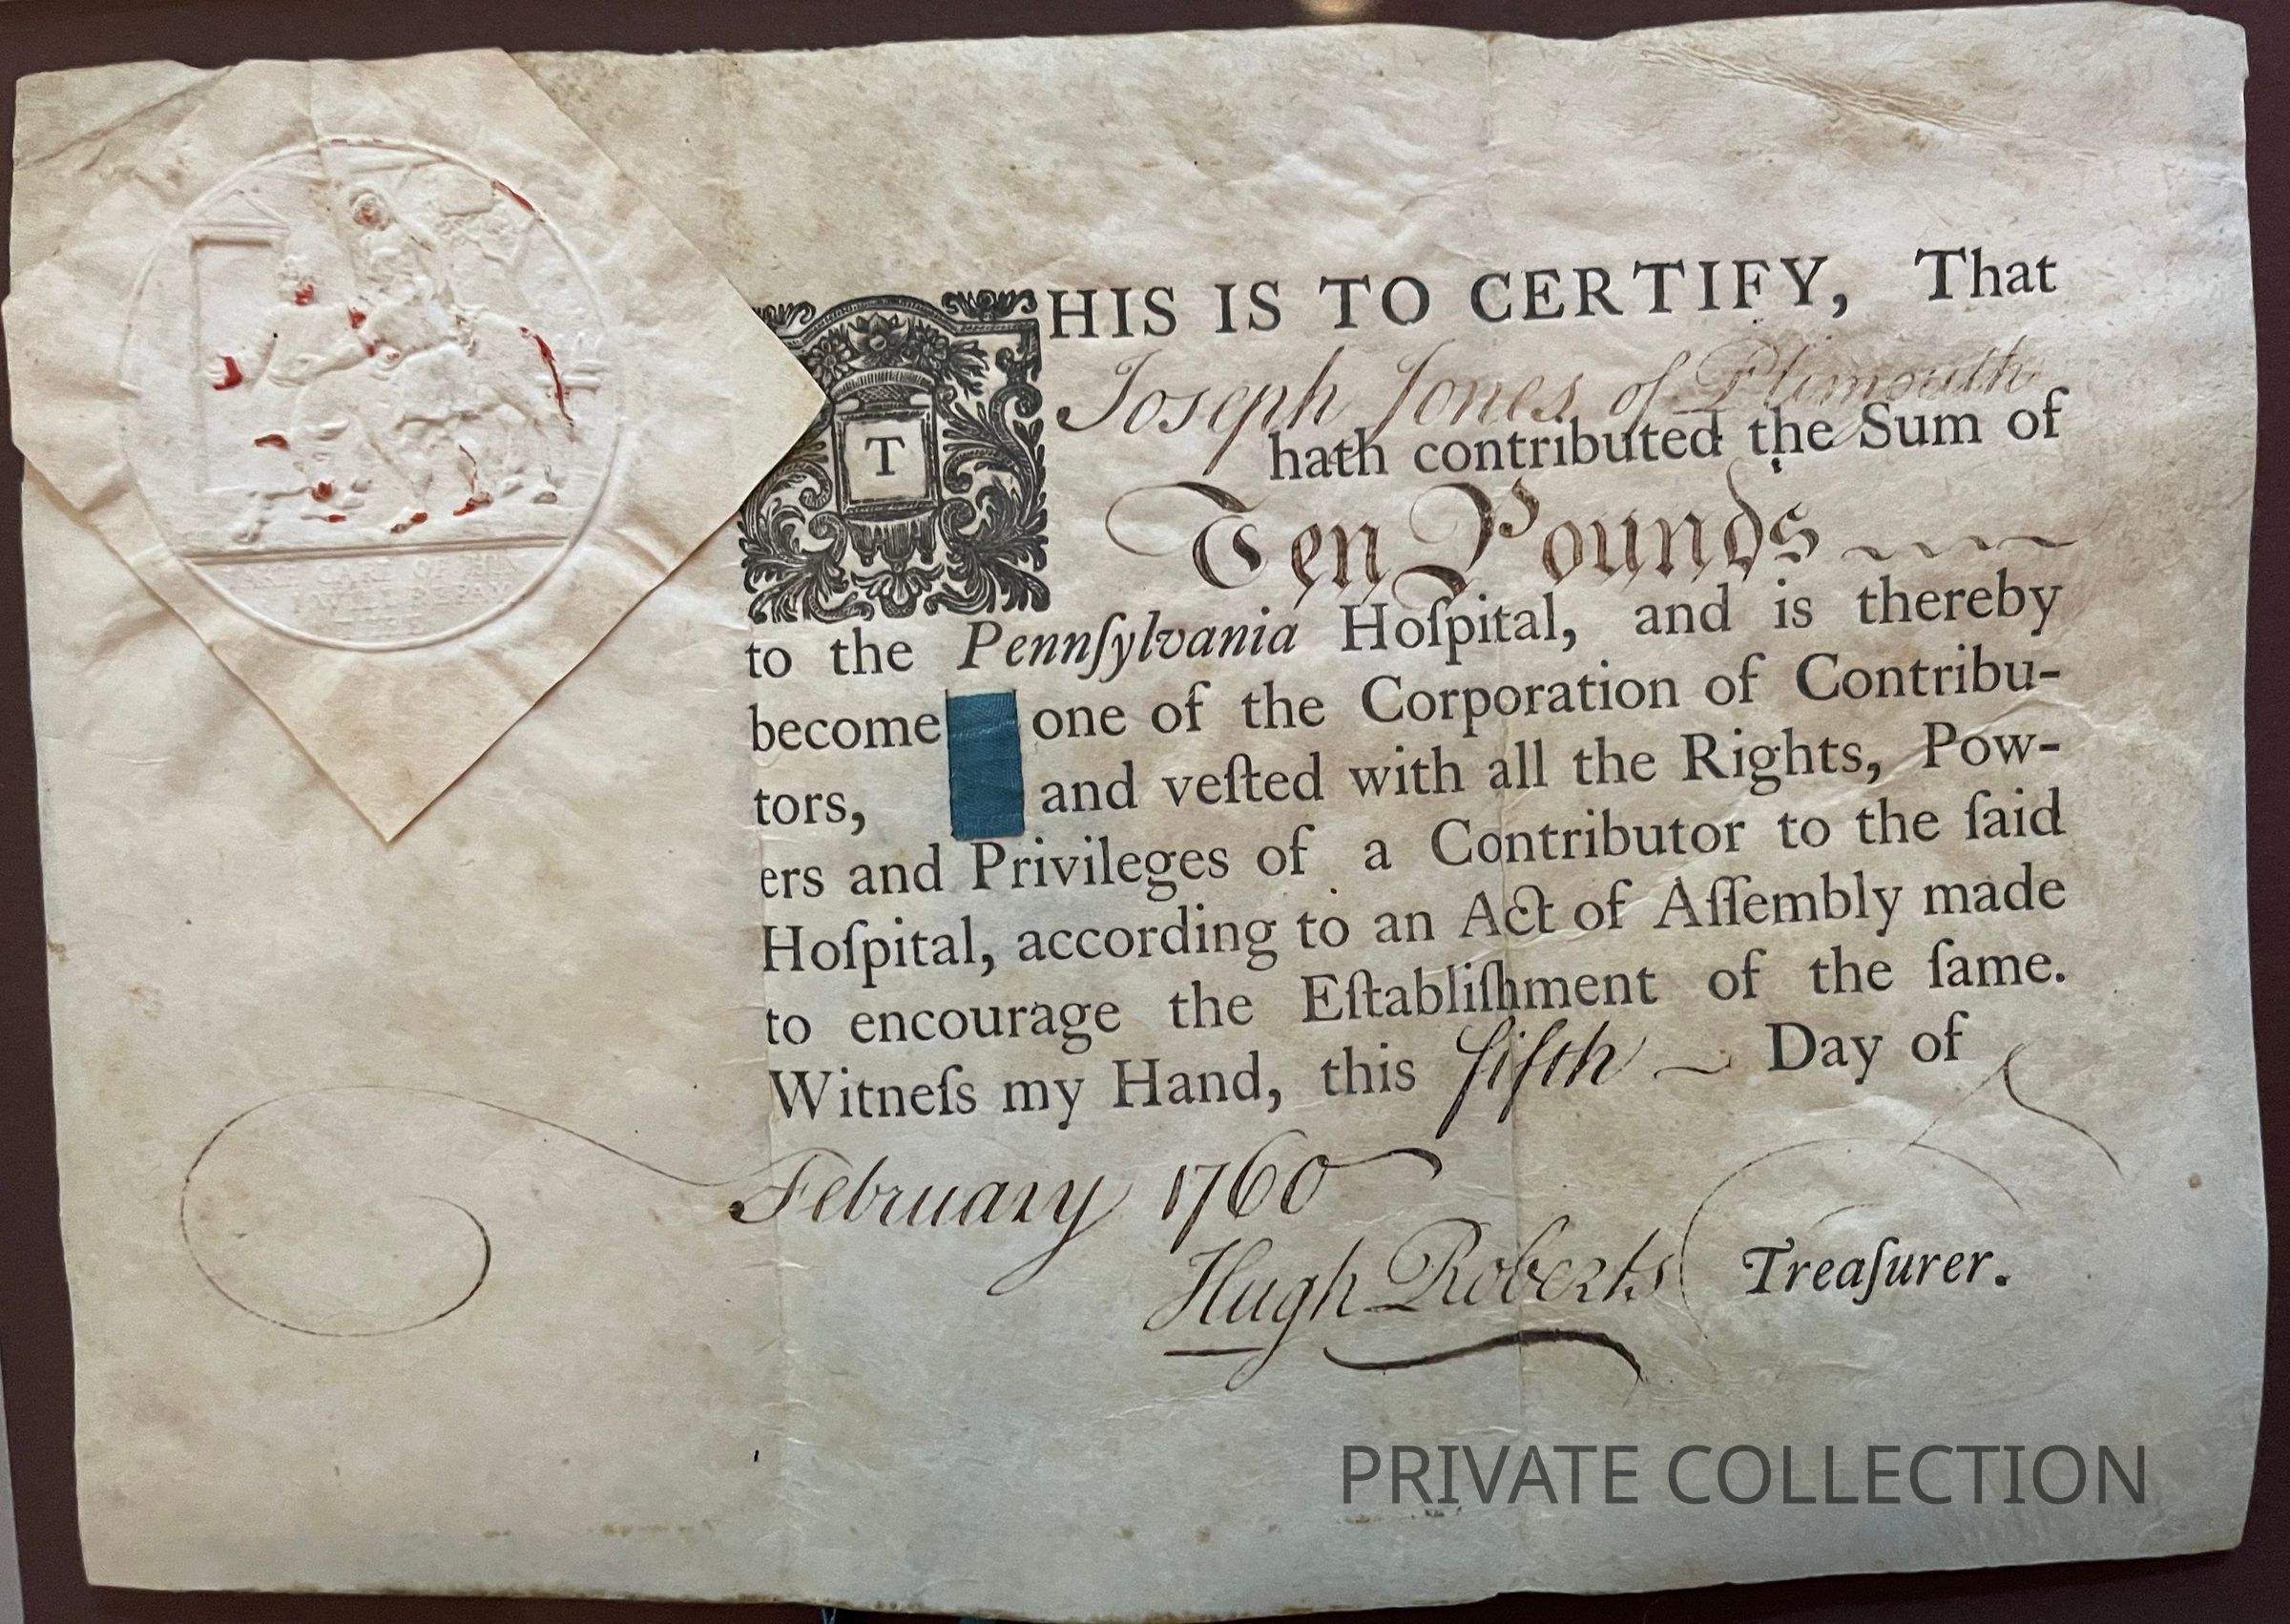 THIS IS TO CERTIFY, That
Joseph Jones of Plimouth
hath contributed the Sum of
Ten Pounds
to the Pennſylvania Hoſpital, and is thereby
become one of the Corporation of Contribu-
tors, and veſted with all the Rights, Pow-
ers and Privileges of a Contributor to the ſaid
Hoſpital, according to an Act of Aſſembly made
to encourage the Eſtabliſhment of the ſame.
Witneſs my Hand, this fifth Day of
February 1760
Hugh Roberts Treaſurer.
TAKE CARE OF HIM
I WILL REPAY
PRIVATE COLLECTION